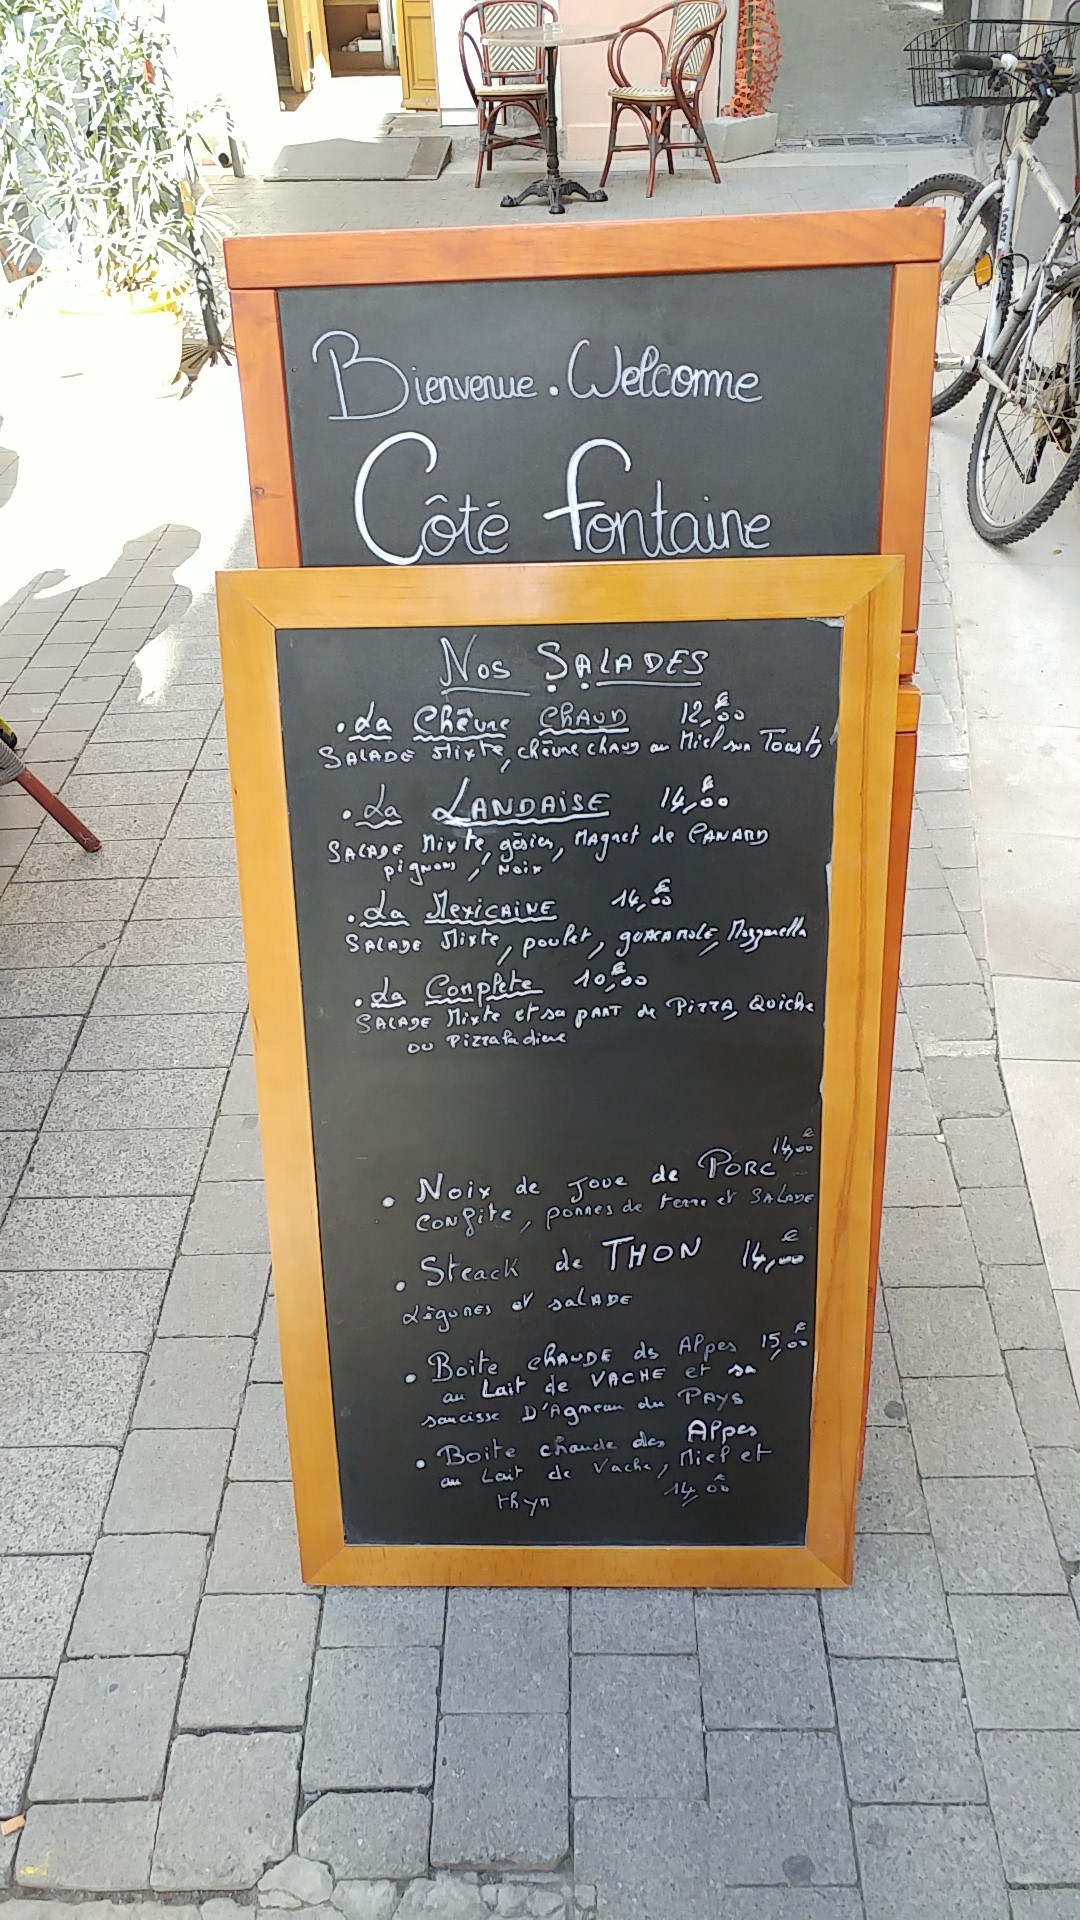 Bienvenue . Welcome
Côté Fontaine
Nos SALADES
. La Chêvre CHAUD 12,00 €
SALADE Mixte, chêvre chaud au Miel sur Toasts
. La LANDAISE 14,00 €
SALADE Mixte, gésier, Magret de CANARD
pignons, Noix
. La MexicAINE 14,00 €
SALADE Mixte, poulet, guacamole, Mozzarella
. La Complète 10,00 €
SALADE Mixte et sa part de Pizza, Quiche
ou Pizzaladiere
. Noix de joue de PORC 14,00 €
confite, pommes de terre et SALADE
. Steack de THON 14,00 €
Légumes et salade
. Boite chaude des Alpes 15,00 €
au Lait de VACHE et sa
saucisse D'Agneau du PAYS
. Boite chaude des Alpes
au Lait de Vache, Miel et
thym 14,00 €